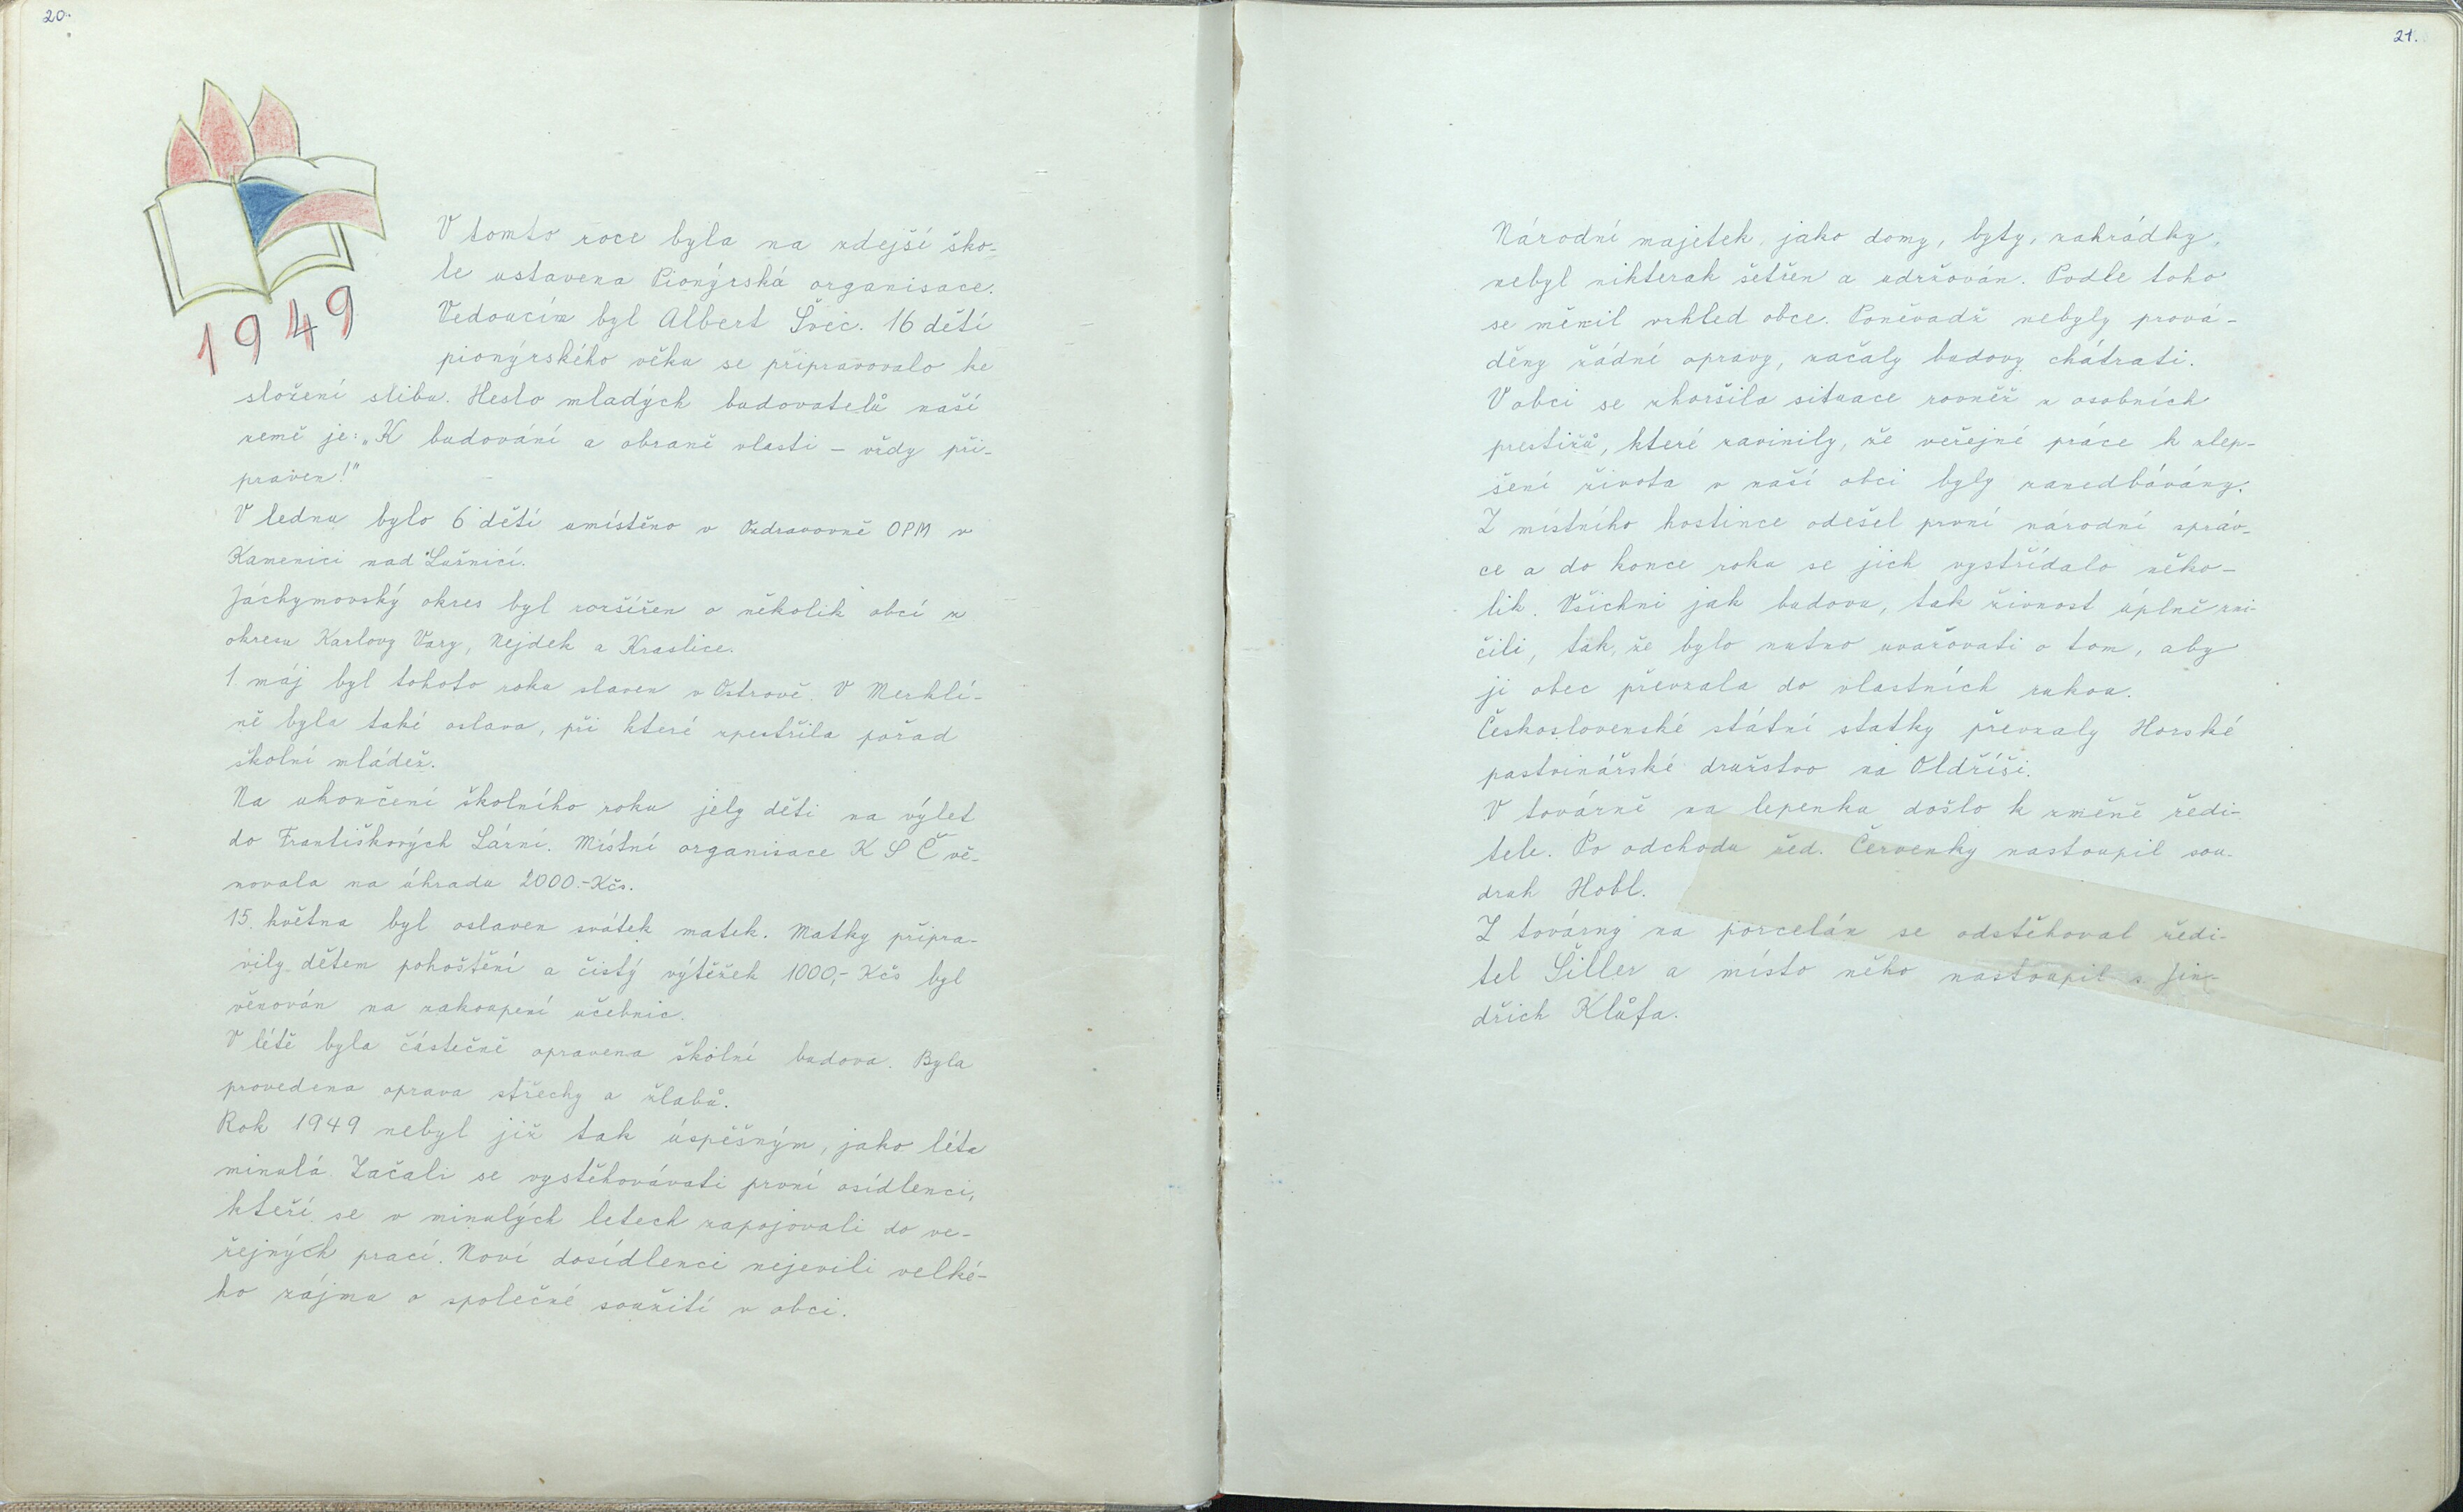 20.
1949
V tomto roce byla na zdejší ško-
le ustavena Pionýrská organisace.
Vedoucím byl Albert Švic. 16 dětí
pionýrského věku se připravovalo ke
složení slibu. Heslo mladých budovatelů naší
země je: „K budování a obraně vlasti – vždy při-
praven!"
V lednu bylo 6 dětí umístěno v Ozdravovně OPM v
Kamenici nad Lužnicí.
Jáchymovský okres byl rozšířen o několik obcí z
okresu Karlovy Vary, Nejdek a Kraslice.
1. máj byl tohoto roku slaven v Ostrově. V Merklí-
ně byla také oslava, při které zpestřila pořad
školní mládež.
Na ukončení školního roku jely děti na výlet
do Františkových Lázní. Místní organisace KSČ vě-
novala na úhradu 2000.- Kčs.
15. května byl oslaven svátek matek. Matky připra-
vily dětem pohoštění a čistý výtěžek 1000,- Kčs byl
věnován na zakoupení učebnic.
V létě byla částečně opravena školní budova. Byla
provedena oprava střechy a žlabů.
Rok 1949 nebyl již tak úspěšným, jako léta
minulá. Začali se vystěhovávati první osídlenci,
kteří se v minulých letech zapojovali do ve-
řejných prací. Noví dosídlenci nejevili velké-
ho zájmu o společné soužití v obci.
21.
Národní majetek, jako domy, byty, zahrádky,
nebyl nikterak šetřen a udržován. Podle toho
se měnil vzhled obce. Poněvadž nebyly prová-
děny žádné opravy, začaly budovy chátrati.
V obci se zhoršila situace rovněž z osobních
prestižů, které zavinily, že veřejné práce k zlep-
šení života v naší obci byly zanedbávány.
Z místního hostince odešel první národní správ-
ce a do konce roku se jich vystřídalo něko-
lik. Všichni jak budovu, tak živnost úplně zni-
čili, tak, že bylo nutno uvažovati o tom, aby
ji obec převzala do vlastních rukou.
Československé státní statky převzaly Horské
pastvinářské družstvo na Oldříši.
V továrně na lepenku došlo k změně ředi-
tele. Po odchodu řed. Červenky nastoupil sou-
druh Hobl.
Z továrny na porcelán se odstěhoval ředi-
tel Šiller a místo něho nastoupil s. Jin-
dřich Klůfa.